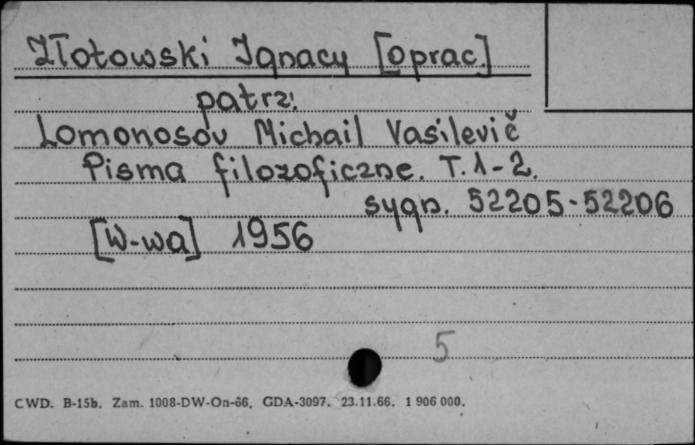 Złotowski Ignacy [oprac.]
patrz:
Lomonosov Michail Vasilevič
Pisma filozoficzne. T. 1-2.
sygn. 52205-52206
[W-wa] 1956
5
CWD. B-15b. Zam. 1008-DW-On-66. GDA-3097. 23.11.66. 1 906 000.